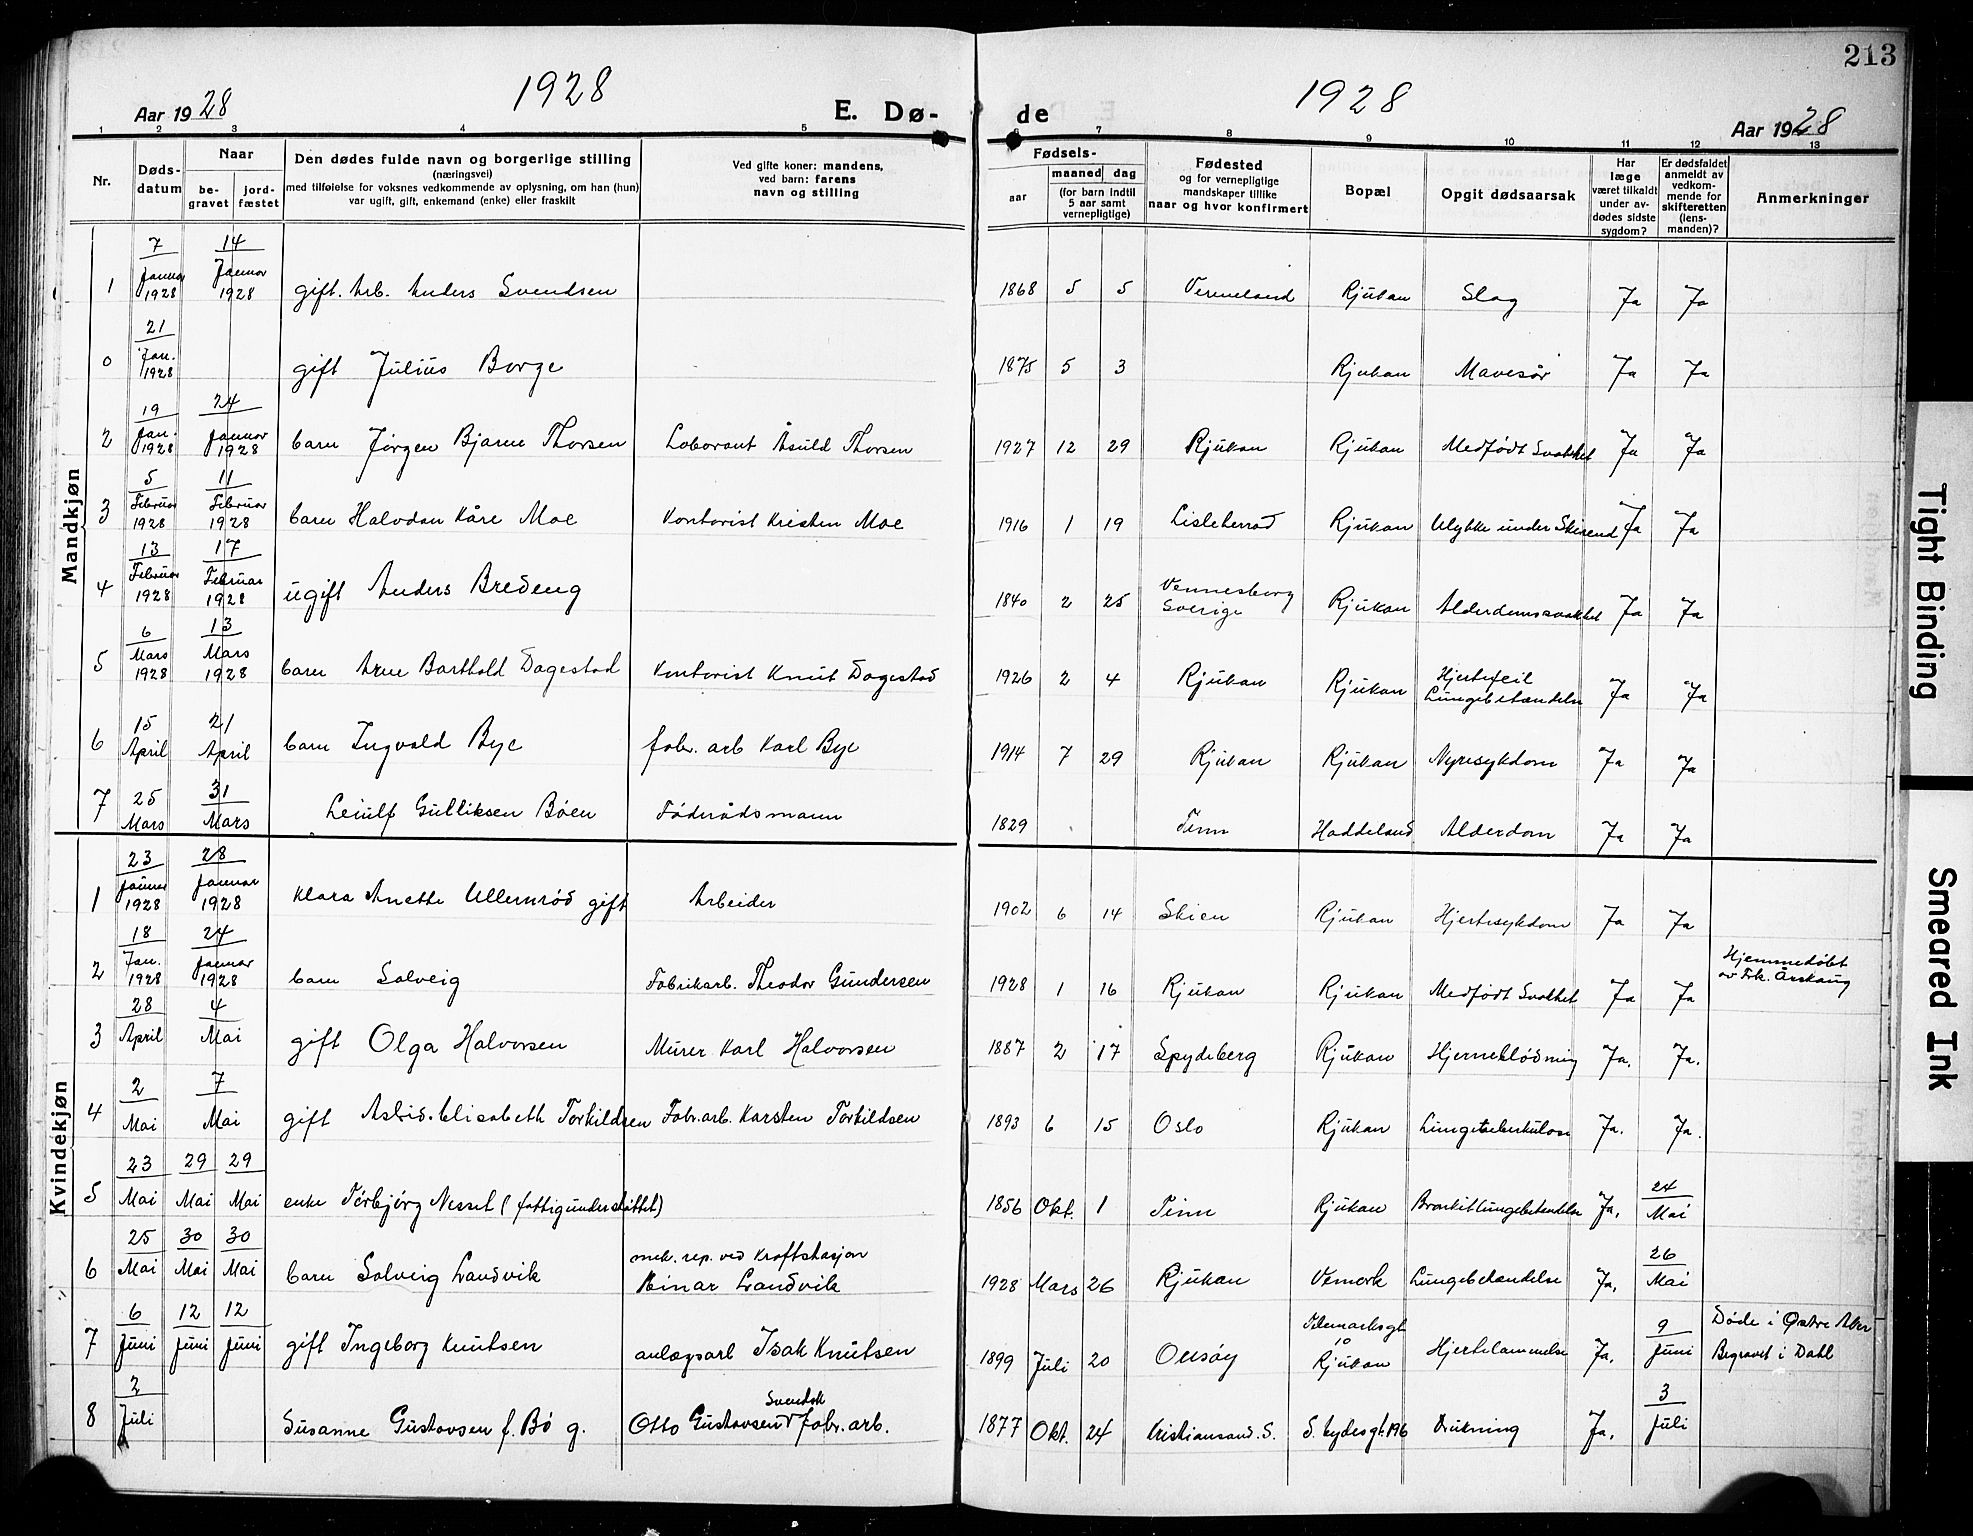 213
1928
1928
Aar 1928
E. Dø-
de
Aar 1928
1 2 3 4 5 6 7 8 9 10 11 12 13
Nr.
Døds-
datum
Naar
be-
gravet
jord-
fæstet
Den dødes fulde navn og borgerlige stilling
(næringsvei)
med tilføielse for voksnes vedkommende av oplysning, om han (hun)
var ugift, gift, enkemand (enke) eller fraskilt
Ved gifte koner: mandens,
ved barn: farens
navn og stilling
Fødsels-
aar
maaned dag
(for barn indtil
5 aar samt
vernepligtige)
Fødested
og for vernepligtige
mandskaper tillike
naar og hvor konfirmert
Bopæl
Opgit dødsaarsak
Har
læge
været tilkaldt
under av-
dødes sidste
sygdom?
Er dødsfaldet
anmeldt av
vedkom-
mende for
skifteretten
(lens-
manden)?
Anmerkninger
Mandkjøn
1 7 Januar 1928 14 Januar 1928 gift. Arb. Anders Svendsen 1868 5 5 Vermeland Rjukan Slag Ja Ja
0 21 Jan. 1928 gift Julius Borge 1875 5 3 Rjukan Mavesår Ja Ja
2 19 Jan. 1928 24 Januar 1928 barn Jørgen Bjarne Thorsen Laborant Åsuld Thorsen 1927 12 29 Rjukan Rjukan Medfødt Svakhet Ja Ja
3 5 Februar 1928 11 Februar 1928 barn Halvdan Kåre Moe Kontorist Kristen Moe 1916 1 19 Lisleherrad Rjukan Ulykke under Skirend Ja Ja
4 13 Februar 1928 17 Februar 1928 ugift Anders Bredeng 1840 2 25 Vennesborg Sverige Rjukan Alderdomssvakhet Ja Ja
5 6 Mars 1928 13 Mars 1928 barn Arne Barthold Dagestad Kontorist Knut Dagestad 1926 2 4 Rjukan Rjukan Hjertefeil Lungebetændelse Ja Ja
6 15 April 21 April barn Ingvald Bye fabr. arb Karl Bye 1914 7 29 Rjukan Rjukan Nyresykdom Ja Ja
7 25 Mars 31 Mars Leiulf Gulliksen Bøen Føderådsmann 1829 Tinn Haddeland Alderdom Ja Ja
Kvindekjøn
1 23 Januar 1928 28 Januar 1928 Klara Anette Ullernrød gift Arbeider 1902 6 14 Skien Rjukan Hjertesykdom Ja Ja
2 18 Jan. 1928 24 Januar 1928 barn Solveig Fabrikarb. Theodor Gundersen 1928 1 16 Rjukan Rjukan Medfødt Svakhet Ja Ja Hjemmedøbt av Frk. Årskaug
3 28 April 4 Mai gift Olga Halvorsen Murer Karl Halvorsen 1887 2 17 Spydeberg Rjukan Hjerneblødning Ja. Ja.
4 2 Mai 7 Mai gift Astrid. Elisabeth Torkildsen Fabr.arb. Karsten Torkildsen 1893 6 15 Oslo Rjukan Lungetuberkulose Ja. Ja.
5 23 Mai 29 Mai 29 Mai enke Torbjørg Nesset (fattigunderstøttet) 1856 Okt. 1 Tinn Rjukan Bronkit Lungebetendelse Ja. 24 Mai
6 25 Mai 30 Mai 30 Mai barn Solveig Landvik mek. rep. ved Kraftstasjon Einar Landvik 1928 Mars 26 Rjukan Vemork Lungebetændelse Ja. 26 Mai
7 6 Juni 12 Juni 12 Juni gift Ingeborg Knutsen anlægsarb Isak Knutsen 1899 Juli 20 Onsøy Telemarksgt 10 Rjukan Hjertelammelse Ja. 9 Juni Døde i Østre Aker Begravet i Dahl
8 2 Juli Susanne Gustavsen f. Bø g. Otto Gustavsen Svendsk fabr. arb. 1877 Okt. 24 Kristiansand. S. S. Eydesgt. 196 Drukning Ja. 3 Juli
Tight Binding
Smeared Ink